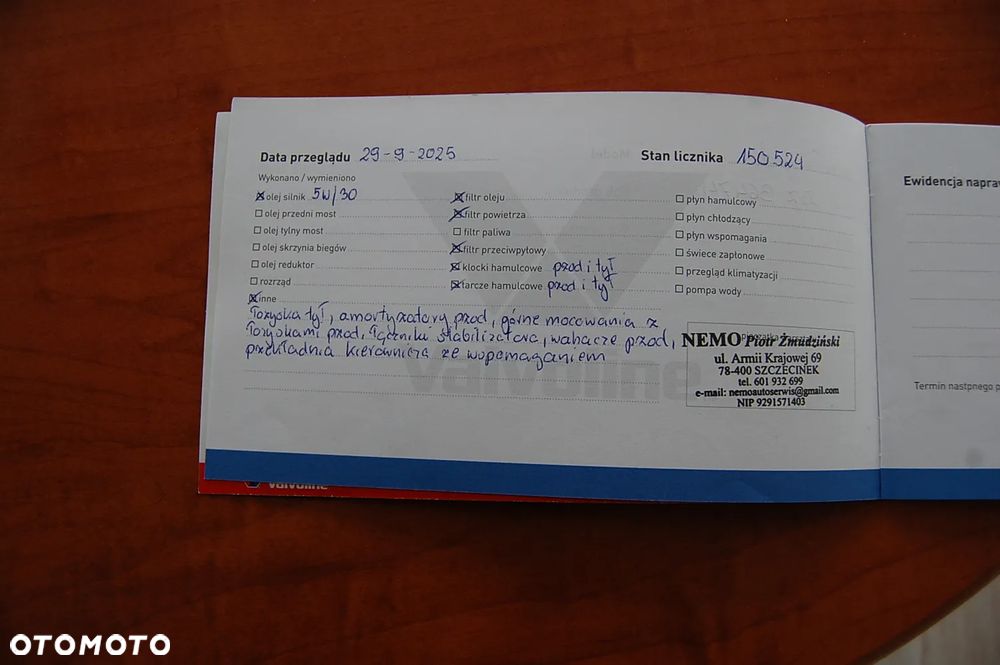 Data przeglądu 29-9-2025 Stan licznika 150 524
Wykonano / wymieniono
olej silnik 5W/30 filtr oleju płyn hamulcowy
olej przedni most filtr powietrza płyn chłodzący
olej tylny most filtr paliwa płyn wspomagania
olej skrzynia biegów filtr przeciwpyłowy świece zapłonowe
olej reduktor klocki hamulcowe przod i tył przegląd klimatyzacji
rozrząd tarcze hamulcowe przod i tył pompa wody
inne
Łożyska tył, amortyzatory przod, górne mocowania z
łożyskami przod, łączniki stabilizatora, wahacze przod,
przekładnia kierownicza ze wspomaganiem
NEMO Piotr Żmudziński
ul. Armii Krajowej 69
78-400 SZCZECINEK
tel. 601 932 699
e-mail: nemoautoserwis@gmail.com
NIP 9291571403
valvoline
Ewidencja napraw
Termin nastpnego p
valvoline
OTOMOTO